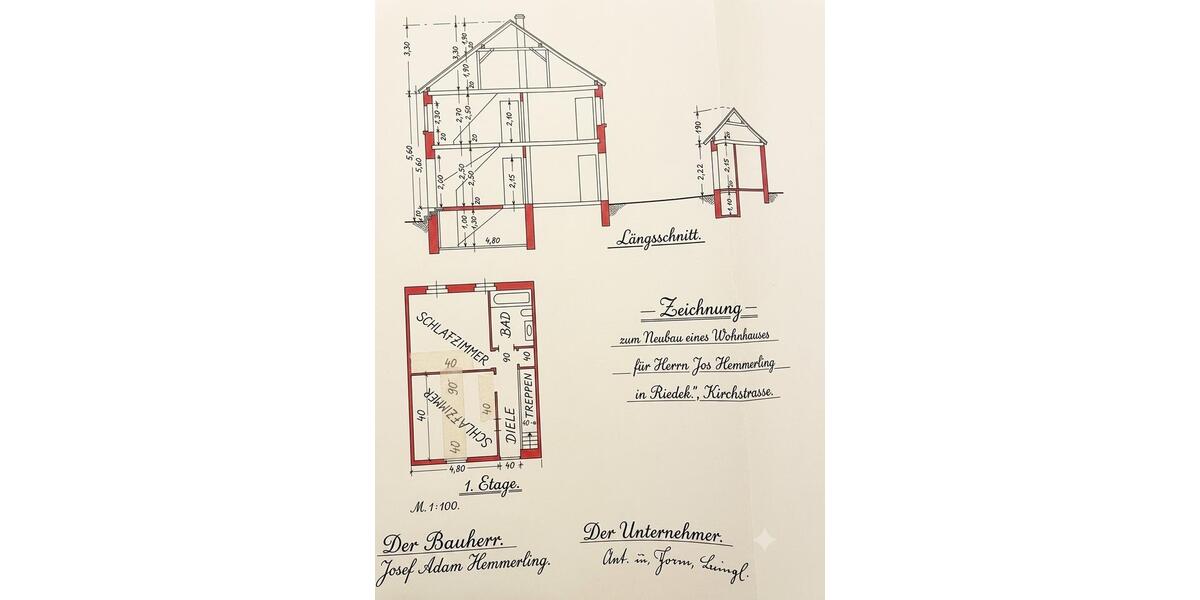 3,30
3,30
1,90
20
1,90
20
5,60
5,60
1,30
20
2,70
2,50
20
2,10
2,00
2,50
2,50
20
2,15
10
1,00
1,30
4,80
190
20
2,22
2,15
20
1,10
Längsschnitt.
SCHLAFZIMMER
BAD
40
90
40
40
90
SCHLAFZIMMER
40
40
DIELE
TREPPEN
40
4,80
40
1. Etage.
M. 1:100.
— Zeichnung —
zum Neubau eines Wohnhauses
für Herrn Jos Hemmerling
in Riedek.", Kirchstrasse.
Der Bauherr.
Josef Adam Hemmerling.
Der Unternehmer.
Ant.